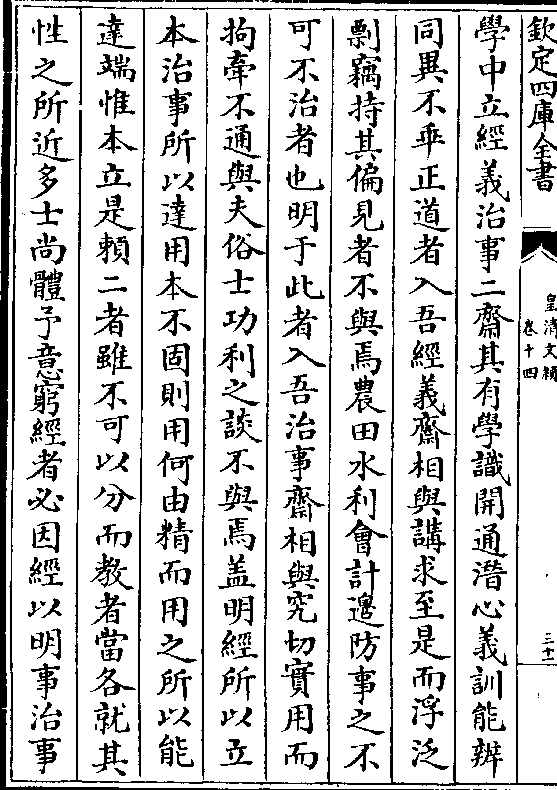 欽定四庫全書
皇清文穎
卷十四
三十二
學中立經義治事二齋其有學識開通潛心義訓能辨
同異不乖正道者入吾經義齋相與講求至是而浮泛
剽竊持其偏見者不與焉農田水利會計邊防事之不
可不治者也明于此者入吾治事齋相與究切實用而
拘牽不通與夫俗士功利之談不與焉盖明經所以立
本治事所以達用本不固則用何由精而用之所以能
達端惟本立是賴二者雖不可以分而教者當各就其
性之所近多士尚體予意窮經者必因經以明事治事